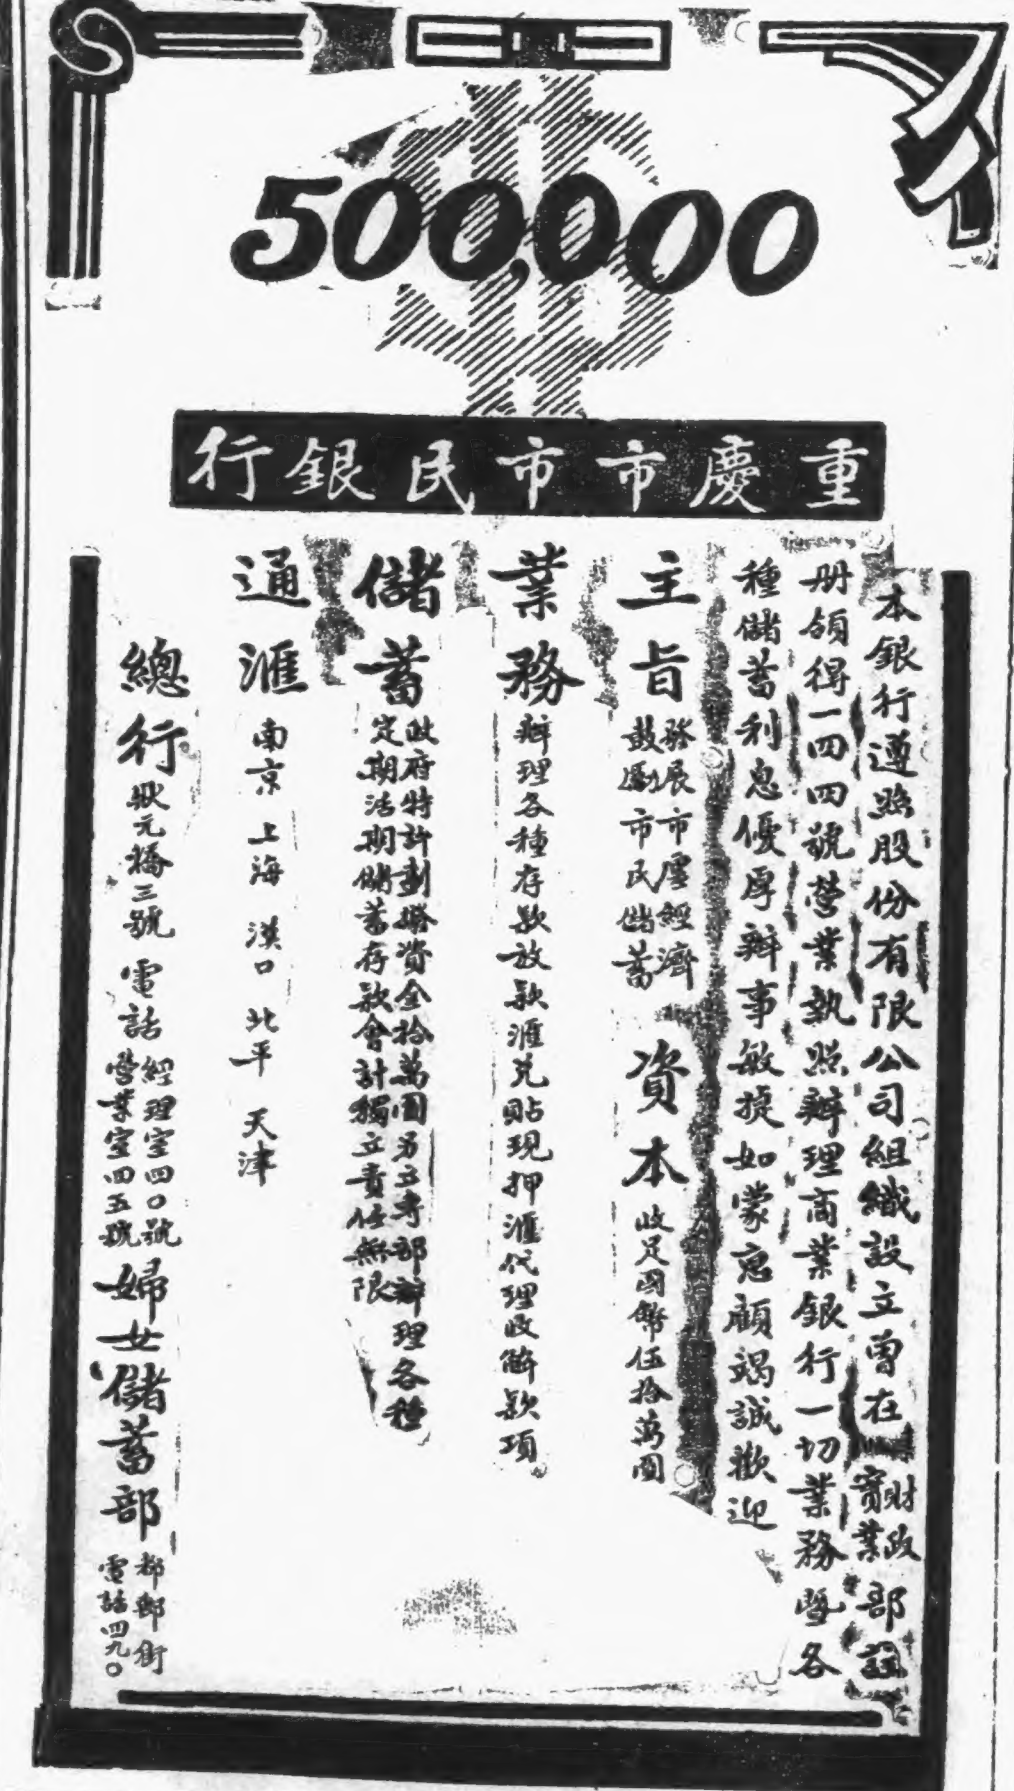 500,000
重慶市市民銀行
本銀行遵照股份有限公司組織設立曾在財政實業部註
册領得一四四號營業執照辦理商業銀行一切業務暨各
種儲蓄利息優厚辦事敏捷如蒙惠顧竭誠歡迎
主旨
發展市廛經濟
鼓勵市民儲蓄
資本 收足國幣伍拾萬圓
業務 辦理各種存款放款滙兌貼現押滙代理收解款項
儲蓄
政府特許劃撥資金拾萬圓另立專部辦理各種
定期活期儲蓄存款會計獨立責任無限
通滙 南京 上海 漢口 北平 天津
總行 狀元橋三號 電話
經理室四〇號
營業室四五號
婦女儲蓄部
都郵街
電話四九〇